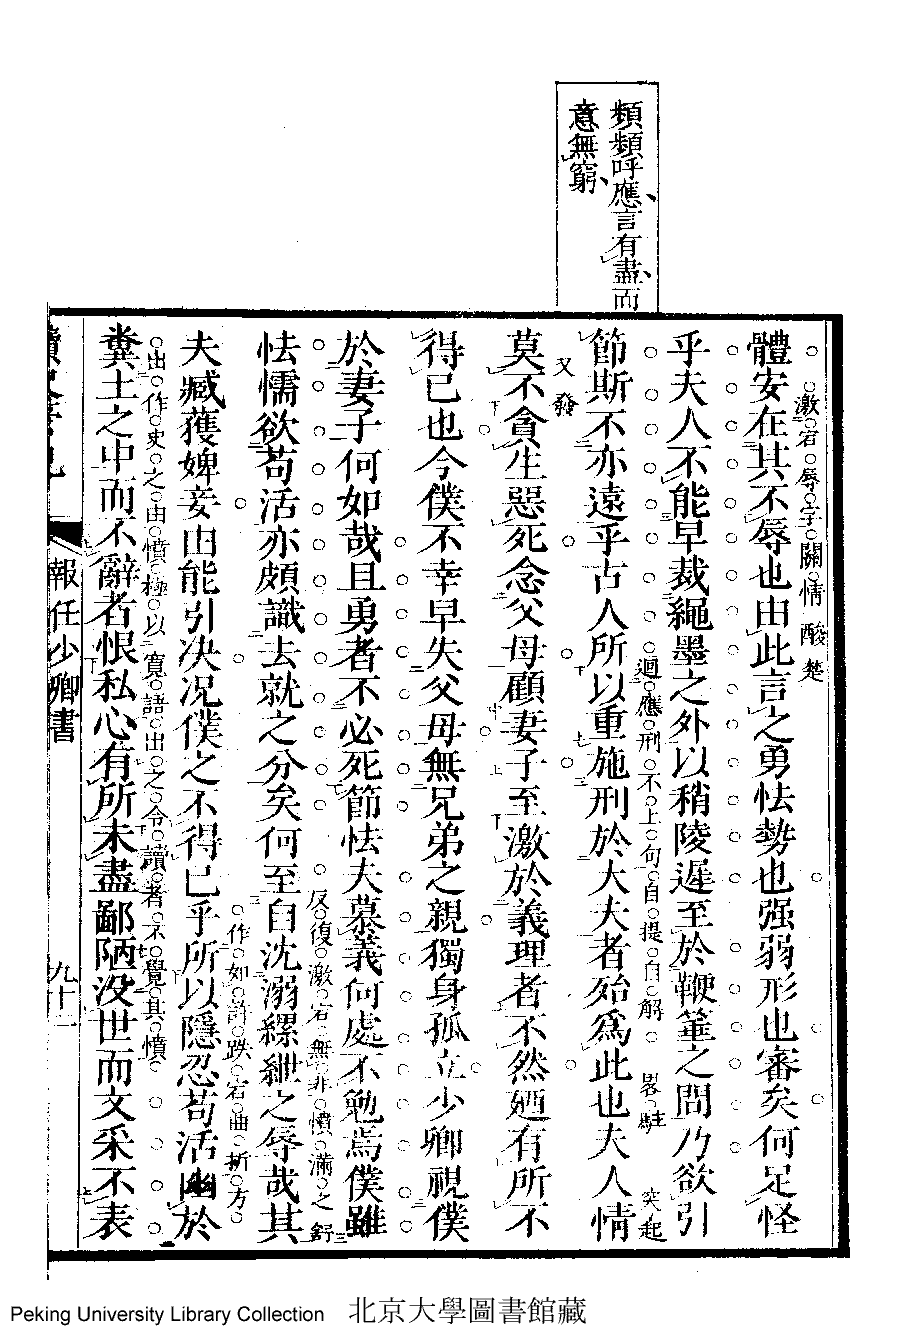 類頻呼應言有盡而
意無窮
體安在其不辱也由此言之勇怯勢也强弱形也審矣何足怪
激宕辱字關情酸楚
乎夫人不能早裁繩墨之外以稍陵遲至於鞭箠之間乃欲引
節斯不亦遠乎古人所以重施刑於大夫者殆爲此也夫人情
迴應刑不上句自提自解 畧駐 突起
莫不貪生惡死念父母顧妻子至激於義理者不然廼有所不
又發
得已也今僕不幸早失父母無兄弟之親獨身孤立少卿視僕
於妻子何如哉且勇者不必死節怯夫慕義何處不勉焉僕雖
怯懦欲苟活亦頗識去就之分矣何至自沈溺縲紲之辱哉其
反復激宕無非憤滿之
夫臧獲婢妾由能引决况僕之不得已乎所以隱忍苟活幽於
作如許跌宕曲折方
糞土之中而不辭者恨私心有所未盡鄙陋没世而文采不表
出作史之由憤極以寬語出之令讀者不覺其憤
報任少卿書
九十一
Peking University Library Collection 北京大學圖書館藏